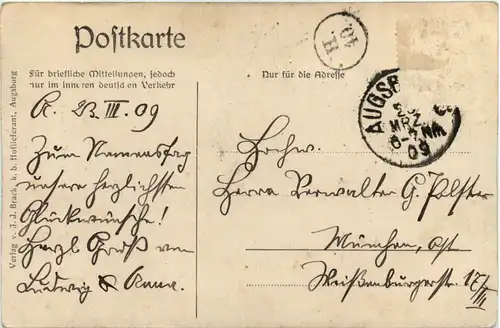 Postkarte
Für briefliche Mitteilungen, jedoch
nur im inneren deutschen Verkehr
Nur für die Adresse
Verlag v. J. J. Brack, k. b. Hoflieferant, Augsburg
AUGSB
23
MRZ
6-7 NM.
09
A. 23. III. 09
Zum Namenstag
unsere herzlichsten
Glückwünsche!
Herzl. Gruß von
Ludwig & Anna.
Hochw.
Herrn Verwalter G.
München, Ost
Weißenburgerstr. 17/III